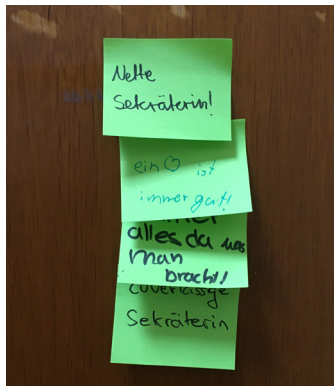 Nette
Sekräterin!
ein ♡ ist
immer gut!
immer
alles da was
man
bracht!
zuverlässige
Sekräterin